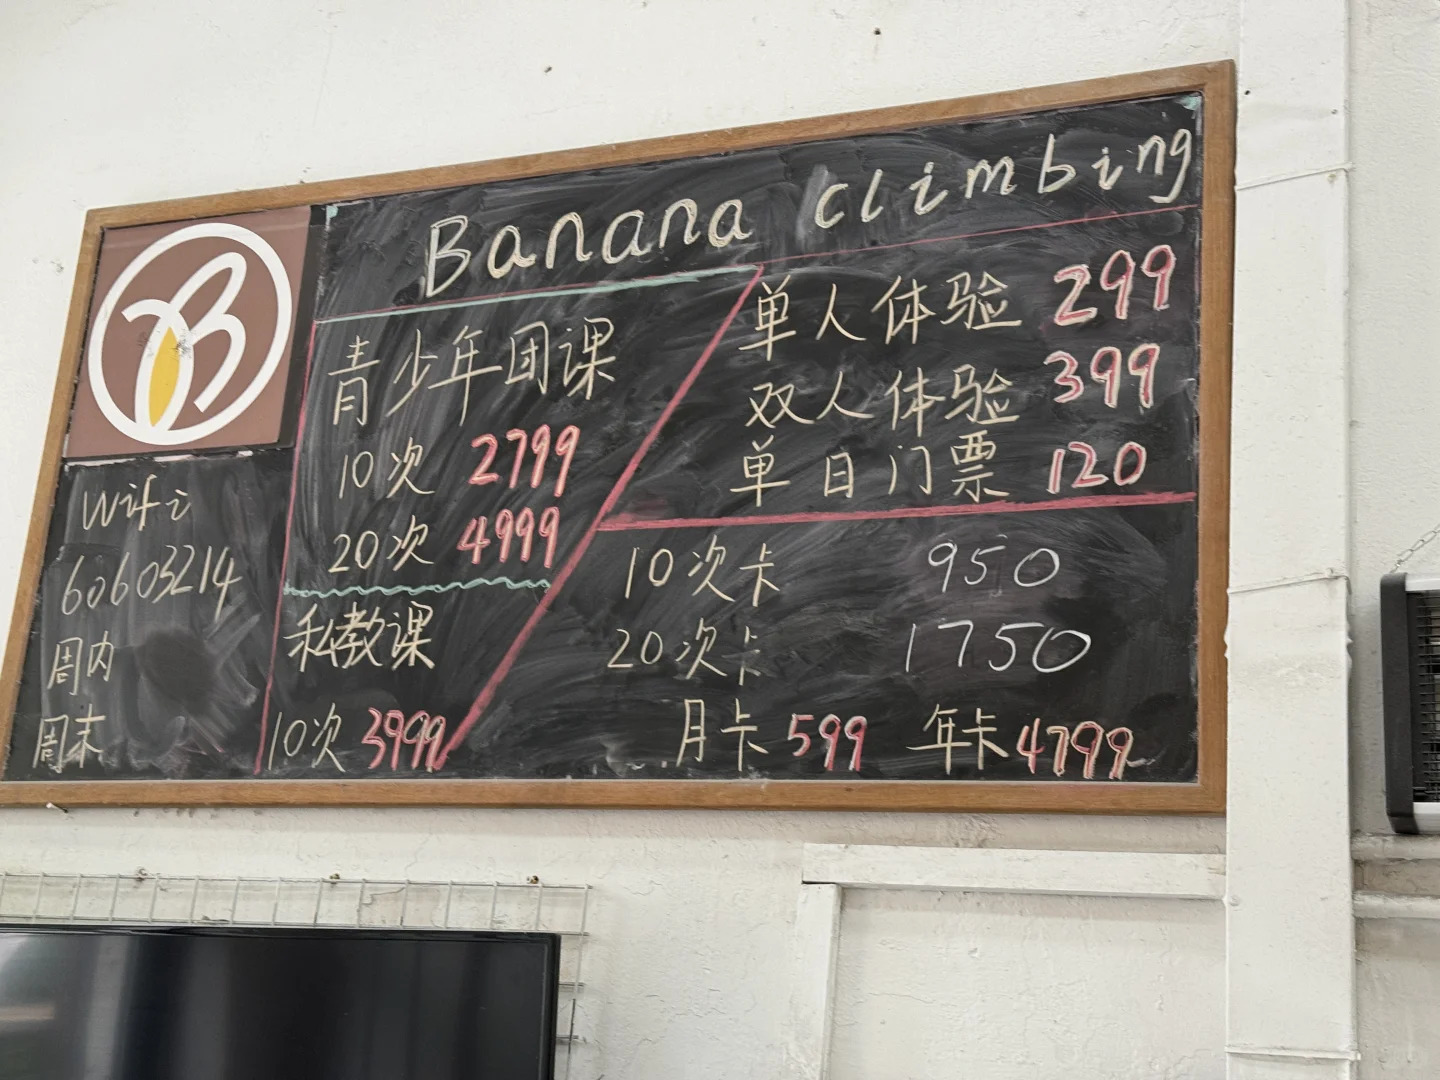 Banana climbing
B
wifi
60603214
周内
周末
青少年团课
10次 2799
20次 4999
私教课
10次 3999
单人体验 299
双人体验 399
单日门票 120
10次卡 950
20次卡 1750
月卡 599 年卡 4799